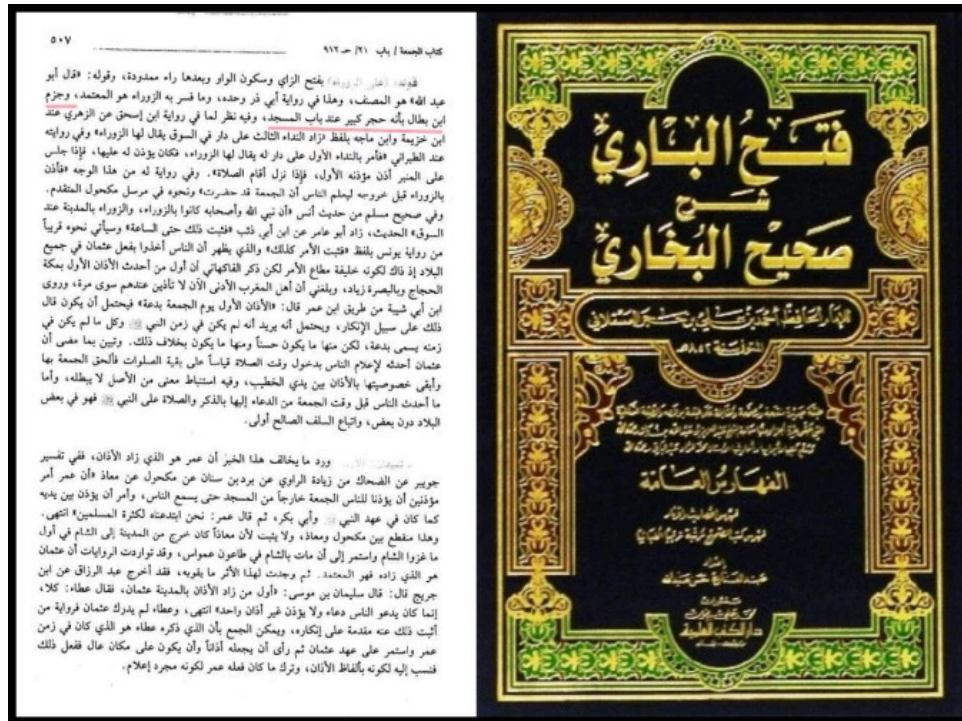 ٥٠٧
كتاب الجمعة / باب ٢١/ حـ ٩١٢
قوله: (على الزوراء) بفتح الزاي وسكون الواو وبعدها راء ممدودة، وقوله: «قال أبو
عبد الله» هو المصنف، وهذا في رواية أبي ذر وحده، وما فسر به الزوراء هو المعتمد، وجزم
ابن بطال بأنه حجر كبير عند باب المسجد، وفيه نظر لما في رواية ابن إسحق عن الزهري عند
ابن خزيمة وابن ماجه بلفظ «زاد النداء الثالث على دار في السوق يقال لها الزوراء» وفي روايته
عند الطبراني «فأمر بالنداء الأول على دار له يقال لها الزوراء، فكان يؤذن له عليها، فإذا جلس
على المنبر أذن مؤذنه الأول، فإذا نزل أقام الصلاة». وفي رواية له من هذا الوجه «فأذن
بالزوراء قبل خروجه ليعلم الناس أن الجمعة قد حضرت» ونحوه في مرسل مكحول المتقدم.
وفي صحيح مسلم من حديث أنس «أن نبي الله وأصحابه كانوا بالزوراء، والزوراء بالمدينة عند
السوق» الحديث، زاد أبو عامر عن ابن أبي ذئب «فثبت ذلك حتى الساعة» وسيأتي نحوه قريباً
من رواية يونس بلفظ «فثبت الأمر كذلك» والذي يظهر أن الناس أخذوا بفعل عثمان في جميع
البلاد إذ ذاك لكونه خليفة مطاع الأمر لكن ذكر الفاكهاني أن أول من أحدث الأذان الأول بمكة
الحجاج وبالبصرة زياد، وبلغني أن أهل المغرب الأدنى الآن لا تأذين عندهم سوى مرة، وروى
ابن أبي شيبة من طريق ابن عمر قال: «الأذان الأول يوم الجمعة بدعة» فيحتمل أن يكون قال
ذلك على سبيل الإنكار، ويحتمل أنه يريد أنه لم يكن في زمن النبي ﷺ وكل ما لم يكن في
زمنه يسمى بدعة، لكن منها ما يكون حسناً ومنها ما يكون بخلاف ذلك. وتبين بما مضى أن
عثمان أحدثه لإعلام الناس بدخول وقت الصلاة قياساً على بقية الصلوات فألحق الجمعة بها
وأبقى خصوصيتها بالأذان بين يدي الخطيب، وفيه استنباط معنى من الأصل لا يبطله، وأما
ما أحدث الناس قبل وقت الجمعة من الدعاء إليها بالذكر والصلاة على النبي ﷺ فهو في بعض
البلاد دون بعض، واتباع السلف الصالح أولى.
ورد ما يخالف هذا الخبر أن عمر هو الذي زاد الأذان، ففي تفسير
جويبر عن الضحاك من زيادة الراوي عن برد بن سنان عن مكحول عن معاذ «أن عمر أمر
مؤذنين أن يؤذنا للناس الجمعة خارجاً من المسجد حتى يسمع الناس، وأمر أن يؤذن بين يديه
كما كان في عهد النبي ﷺ وأبي بكر، ثم قال عمر: نحن ابتدعناه لكثرة المسلمين» انتهى.
وهذا منقطع بين مكحول ومعاذ، ولا يثبت لأن معاذاً كان خرج من المدينة إلى الشام في أول
ما غزوا الشام واستمر إلى أن مات بالشام في طاعون عمواس، وقد تواردت الروايات أن عثمان
هو الذي زاده فهو المعتمد. ثم وجدت لهذا الأثر ما يقويه، فقد أخرج عبد الرزاق عن ابن
جريج قال: قال سليمان بن موسى: «أول من زاد الأذان بالمدينة عثمان، فقال عطاء: كلا،
إنما كان يدعو الناس دعاء ولا يؤذن غير أذان واحد» انتهى، وعطاء لم يدرك عثمان فرواية من
أثبت ذلك عنه مقدمة على إنكاره، ويمكن الجمع بأن الذي ذكره عطاء هو الذي كان في زمن
عمر واستمر على عهد عثمان ثم رأى أن يجعله أذاناً وأن يكون على مكان عال ففعل ذلك
فنسب إليه لكونه بألفاظ الأذان، وترك ما كان فعله عمر لكونه مجرد إعلام.
فتح الباري
شرح
صحيح البخاري
للإمام الحافظ أحمد بن علي بن حجر العسقلاني
المتوفى سنة ٨٥٢هـ
الفهارس العامة
دار الكتب العلمية